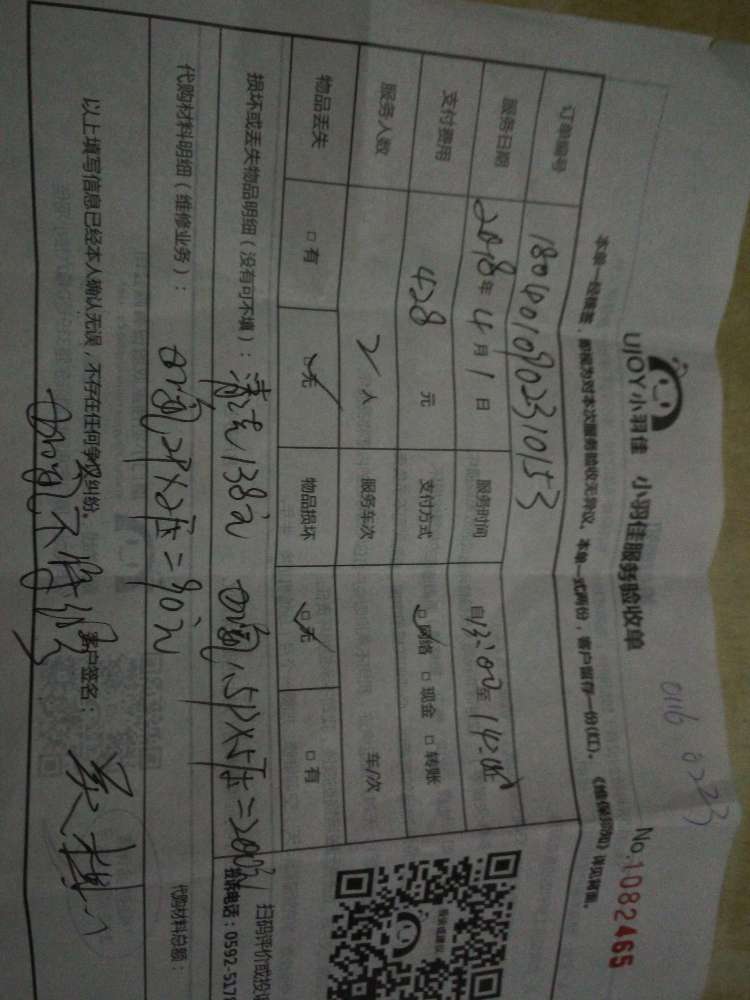 0116 0223
UJOY小羽佳 小羽佳服务验收单 No.1082465
本单一经签署，即视为对本次服务验收无异议。本单一式两份，客户留存一份(红)。《维保须知》详见背面。
订单编号 1804010902310153
服务日期 2018年4月1日 服务时间 自13:00至14:05
支付费用 428元 支付方式 网络 现金 转账
服务人数 2人 服务车次 车/次
物品丢失 有 无 物品损坏 无 有
损坏或丢失物品明细（没有可不填）： 清洗138元 加氟1.5P×5压=200元
扫码评价或投诉
投诉电话：0592-517
代购材料明细（维修业务）： 加氟2P×2压=90元
代购材料总额：
以上填写信息已经本人确认无误，不存在任何争议纠纷。 客户签名：
加氟不特保